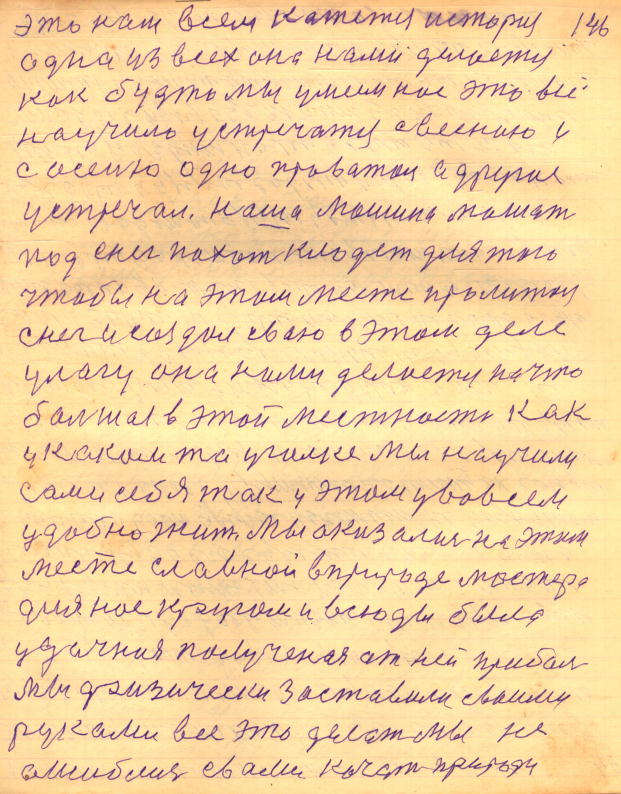 это нам всем кажетця история 146
одна из всех она нами делаетця
как будто мы умеем нас это все
научило устречатця с весною и
с осенью одно проважал а другое
устречал. Наша машина
под снег пахот кладет для того
чтобы на этом месте
снег и создал сваю в этом деле
улагу она нами делаетця на что
болшая в этой местности как
у каком та уголке мы научили
сами себя так у этом у во всем
удобно жит. Мы оказалия на этом
месте славной в природе мастера
для нас кругом и всюды была
удачная полученая от ней прибал
мы физически заставили своими
руками все это делат мы не
ошиблия с вами качат природу